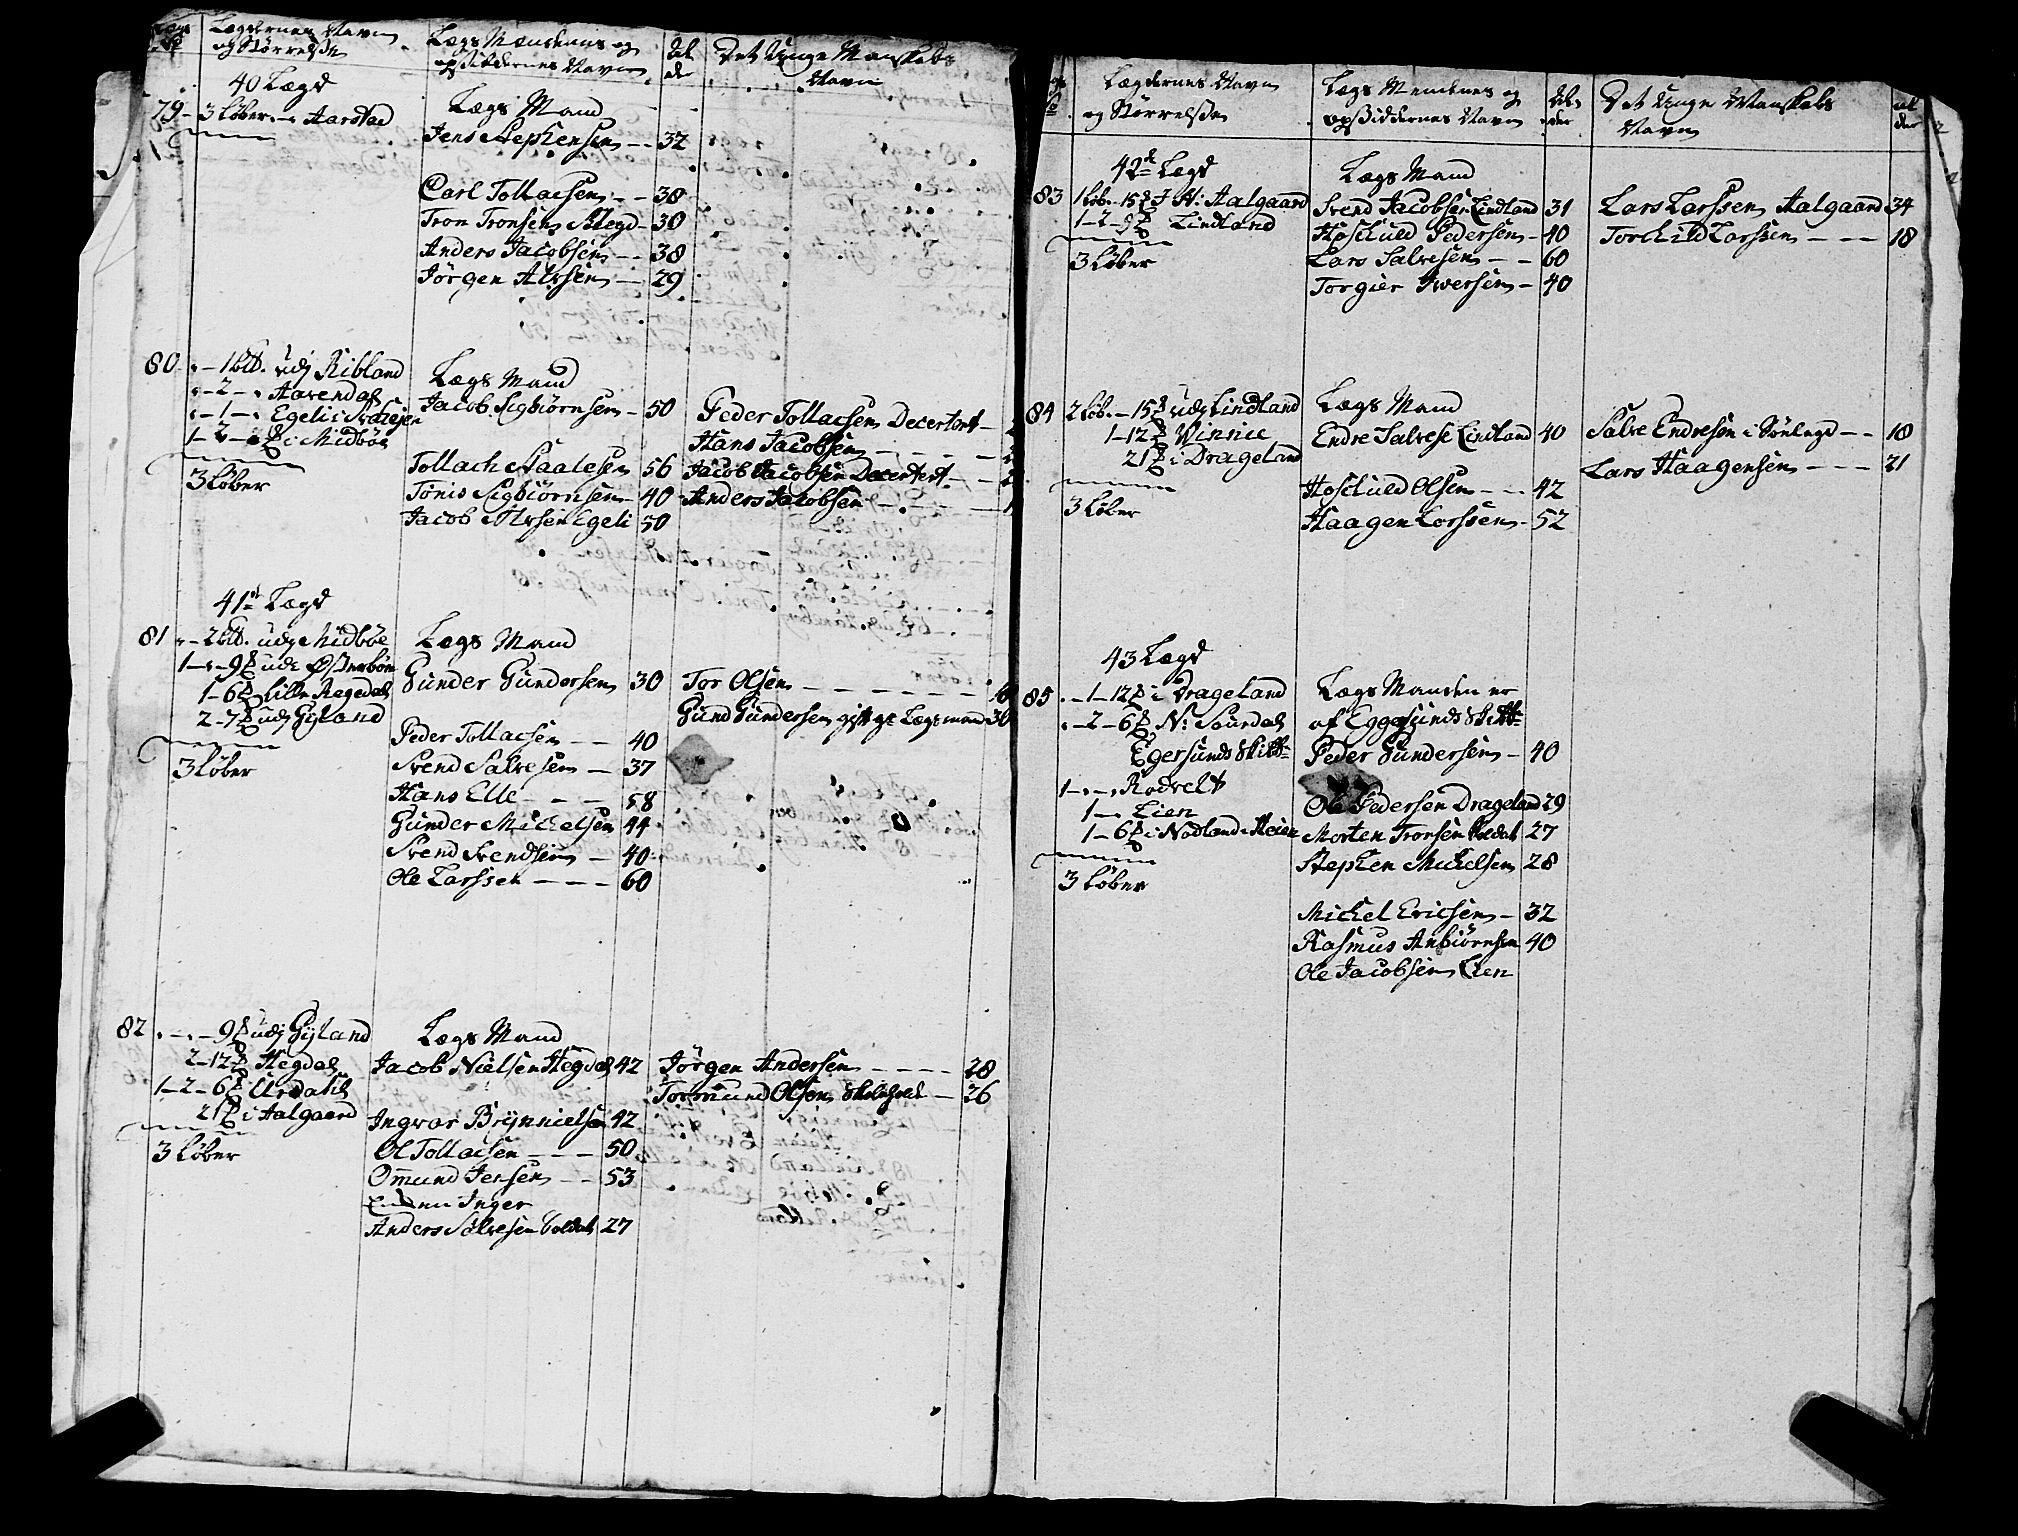 Lægdernes Navn og Størrelse
Lægs Mændenes og opsiddernes Navn
Alder
Det Unge Mandskabs Navn
40 Lægd
79 - 3 Løber i Aarstad
Lægs Mand
Jens Stephensen - 32
Carl Tollacsen - 38
Tron Tronsen - 30
Anders Jacobsen - 38
Jørgen Atssen - 29
80 - 1 bd. udj Ribland
- 2 - Aavendal
- 1 - Egeli i
1 - 2 - i Midbøe
3 Løber
Lægs Mand
Jacob Sigbiørnsen - 50
Tollach Staalesen 56
Tønis Sigbiørnsen - 40
Jacob Atssen Egeli 50
Peder Tollacsen Decertert
Hans Jacobsen
Jacob Jacobsen Decertert
Anders Jacobsen
41de Lægd
81 - 2 bd. udj Midbøe
1 - - 9 udi Østerbøe
1 - 6 Lille Regedal
2 - 7 udj Gyland
3 Løber
Lægs Mand
Gunder Gundersen 30
Peder Tollacsen - 40
Svend Salvesen - 37
Hans Elle - 58
Gunder Michelsen 44
Svend Svendsen - 40
Ole Larssen - 60
Tor Olsen
Gund Gundersen gift gl Lægsmand 30
82 - - 9 udj Gyland
2 - 12 Hegdal
1 - 2 - 6 Urdahl
21 i Aalgaard
3 Løber
Lægs Mand
Jacob Nielsen Hegdal 42
Ingvar Brynnielsen 42
Ol Tollacsen - 50
Omund Jensen - 53
Enken Inger
Anders Salvesen Soldat 27
Jørgen Andersen - 28
Tormund Olsen - 26
Lægdernes Navn og Størrelse
Lægs Mendenes og opsiddernes Navn
Alder
Det Unge Manskabs Navn
Alder
42de Lægd
83 1 Løb. - 15 I N: Aalgaard
1 - 2 - 9 Lindland
3 Løber
Lægs Mand
Svend Jacobsen Lindland 31
Hoschuld Pedersen - 40
Lars Salvesen - 60
Torgier Iversen - 40
Lars Larssen Aalgaard 34
Torchild Larssen - 18
84 2 Løb. - 15 udj Lindland
1 - 12 Vinnie
21 i Drageland
3 Løber
Lægs Mand
Endre Salvese Lindland 40
Hoschuld Olsen - 42
Haagen Lorssen - 52
Salve Endresøn i - 18
Lars Haagensen - 21
43 Lægd
85 - 1 - 12 i Drageland
- 2 - 6 N: Sourdal
Egersunds Skibr:
1 - - Rodvelt
1 - Lien
1 - 6 i Nodland Heien
3 Løber
Lægs Manden er
af Eggesunds Skibr:
Peder Gundersen - 40
Ole Pedersen Drageland 29
Morten Tronsen Soldat 27
Stephen Michelsen 28
Michel Ericsen - 32
Rasmus Anbiørnsen 40
Ole Jacobsen Lien